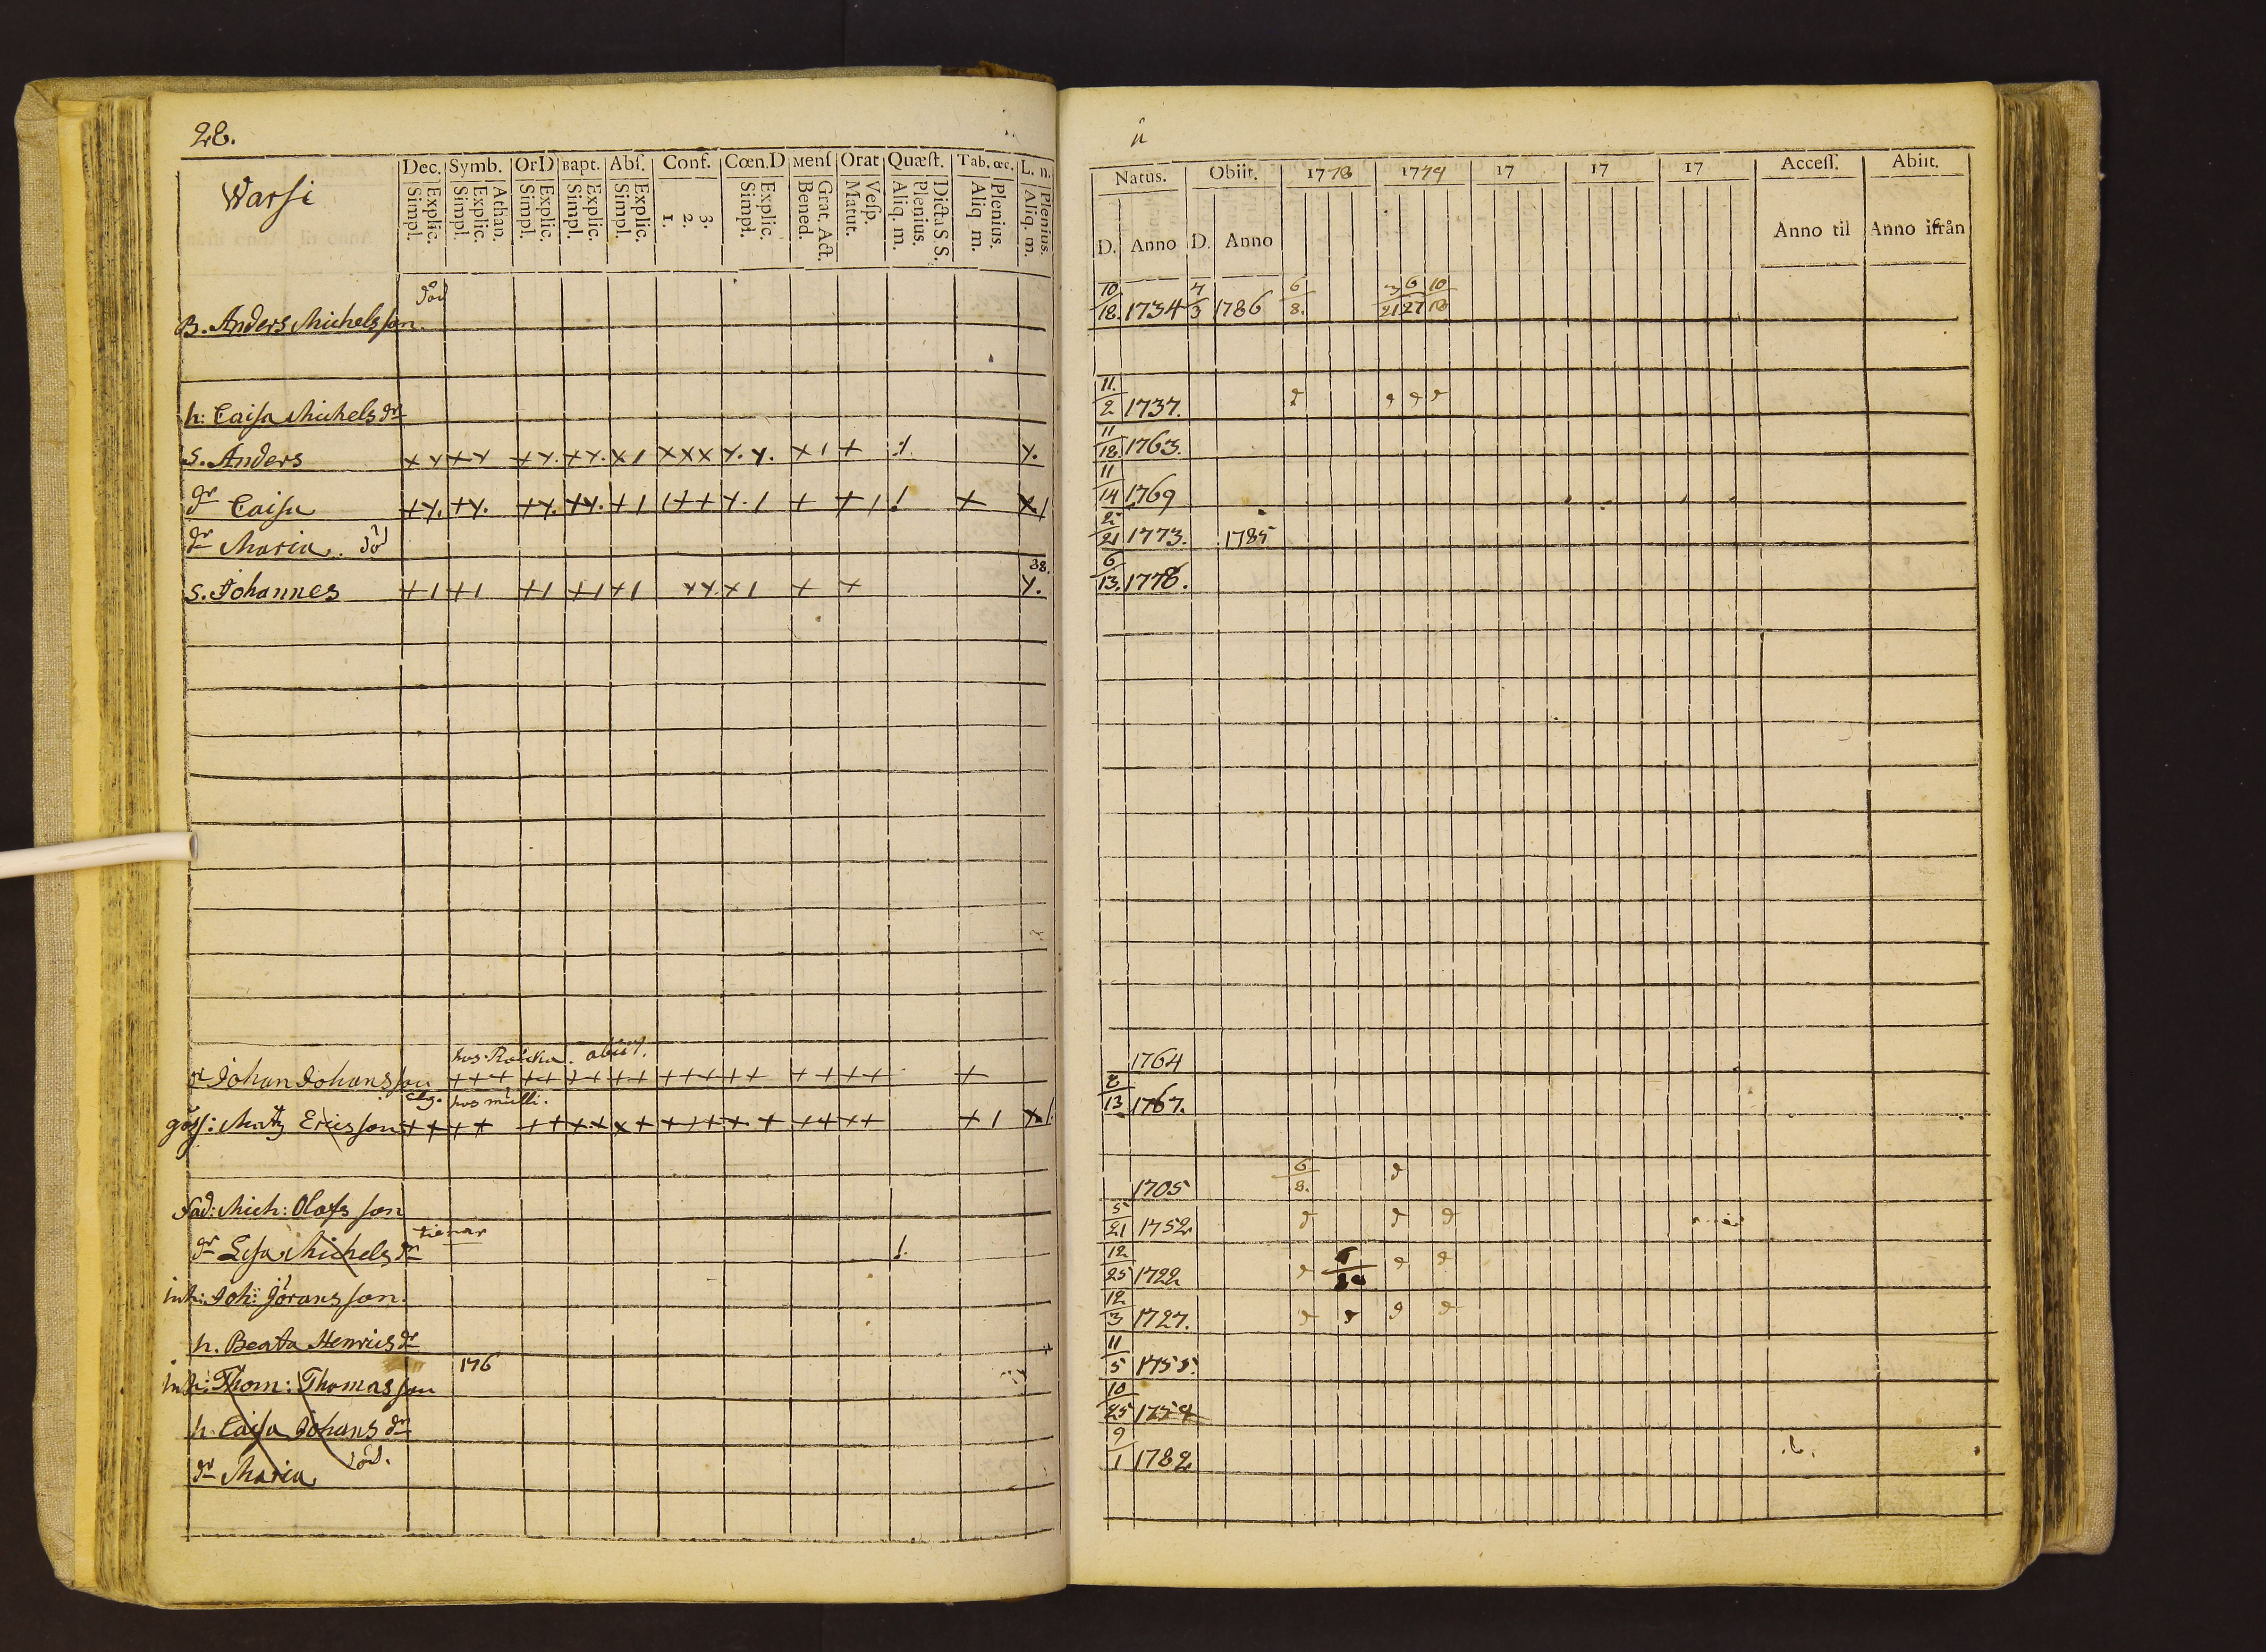 28.
Dec. Symb. OrD Bapt. Abſ. Conf. Cœn.D Menſ Orat Quæſt. Tab. œc. L. n.
Warſi
Explic. Simpl. Athan. Explic. Simpl. Explic. Simpl. Explic. Simpl. Explic. Simpl. 3. 2. 1. Explic. Simpl. Grat. Act. Bened. Veſp. Matut. Dicta S. S. Plenius. Aliq. m. Plenius. Aliq m. Plenius. Aliq. m.
död
B. Anders Michelsson
h: Caisa Michels dr
S. Anders
dr Caisa
dr Maria död
38.
S. Johannes
hos abiit.
dr Johan Johansson
hos
göss: Matz Ericsson
Fad: Mich: Olofsson
tienar
dr Lisa Michels dr
inh: Joh: Göransson
h. Beata Henrics dr
176
inh: Thom: Thomasson
h. Caisa Johans dr
död.
dr Maria
Natus. Obiit. 1778 1779 17 17 17 Acceſſ. Abiit.
D. Anno D. Anno Anno til Anno ifrån
10/18. 1734 4/3 1786 6/8. 6/27 10/18
11./2 1737.
11/18. 1763.
11/14 1769
2/21 1773. 1785
6/13. 1778.
1764
2/13 1767.
1705 6/8.
5/21 1752
12/25 1722
12/3 1727.
11/5 1755.
10/25 1759
9/1 1782